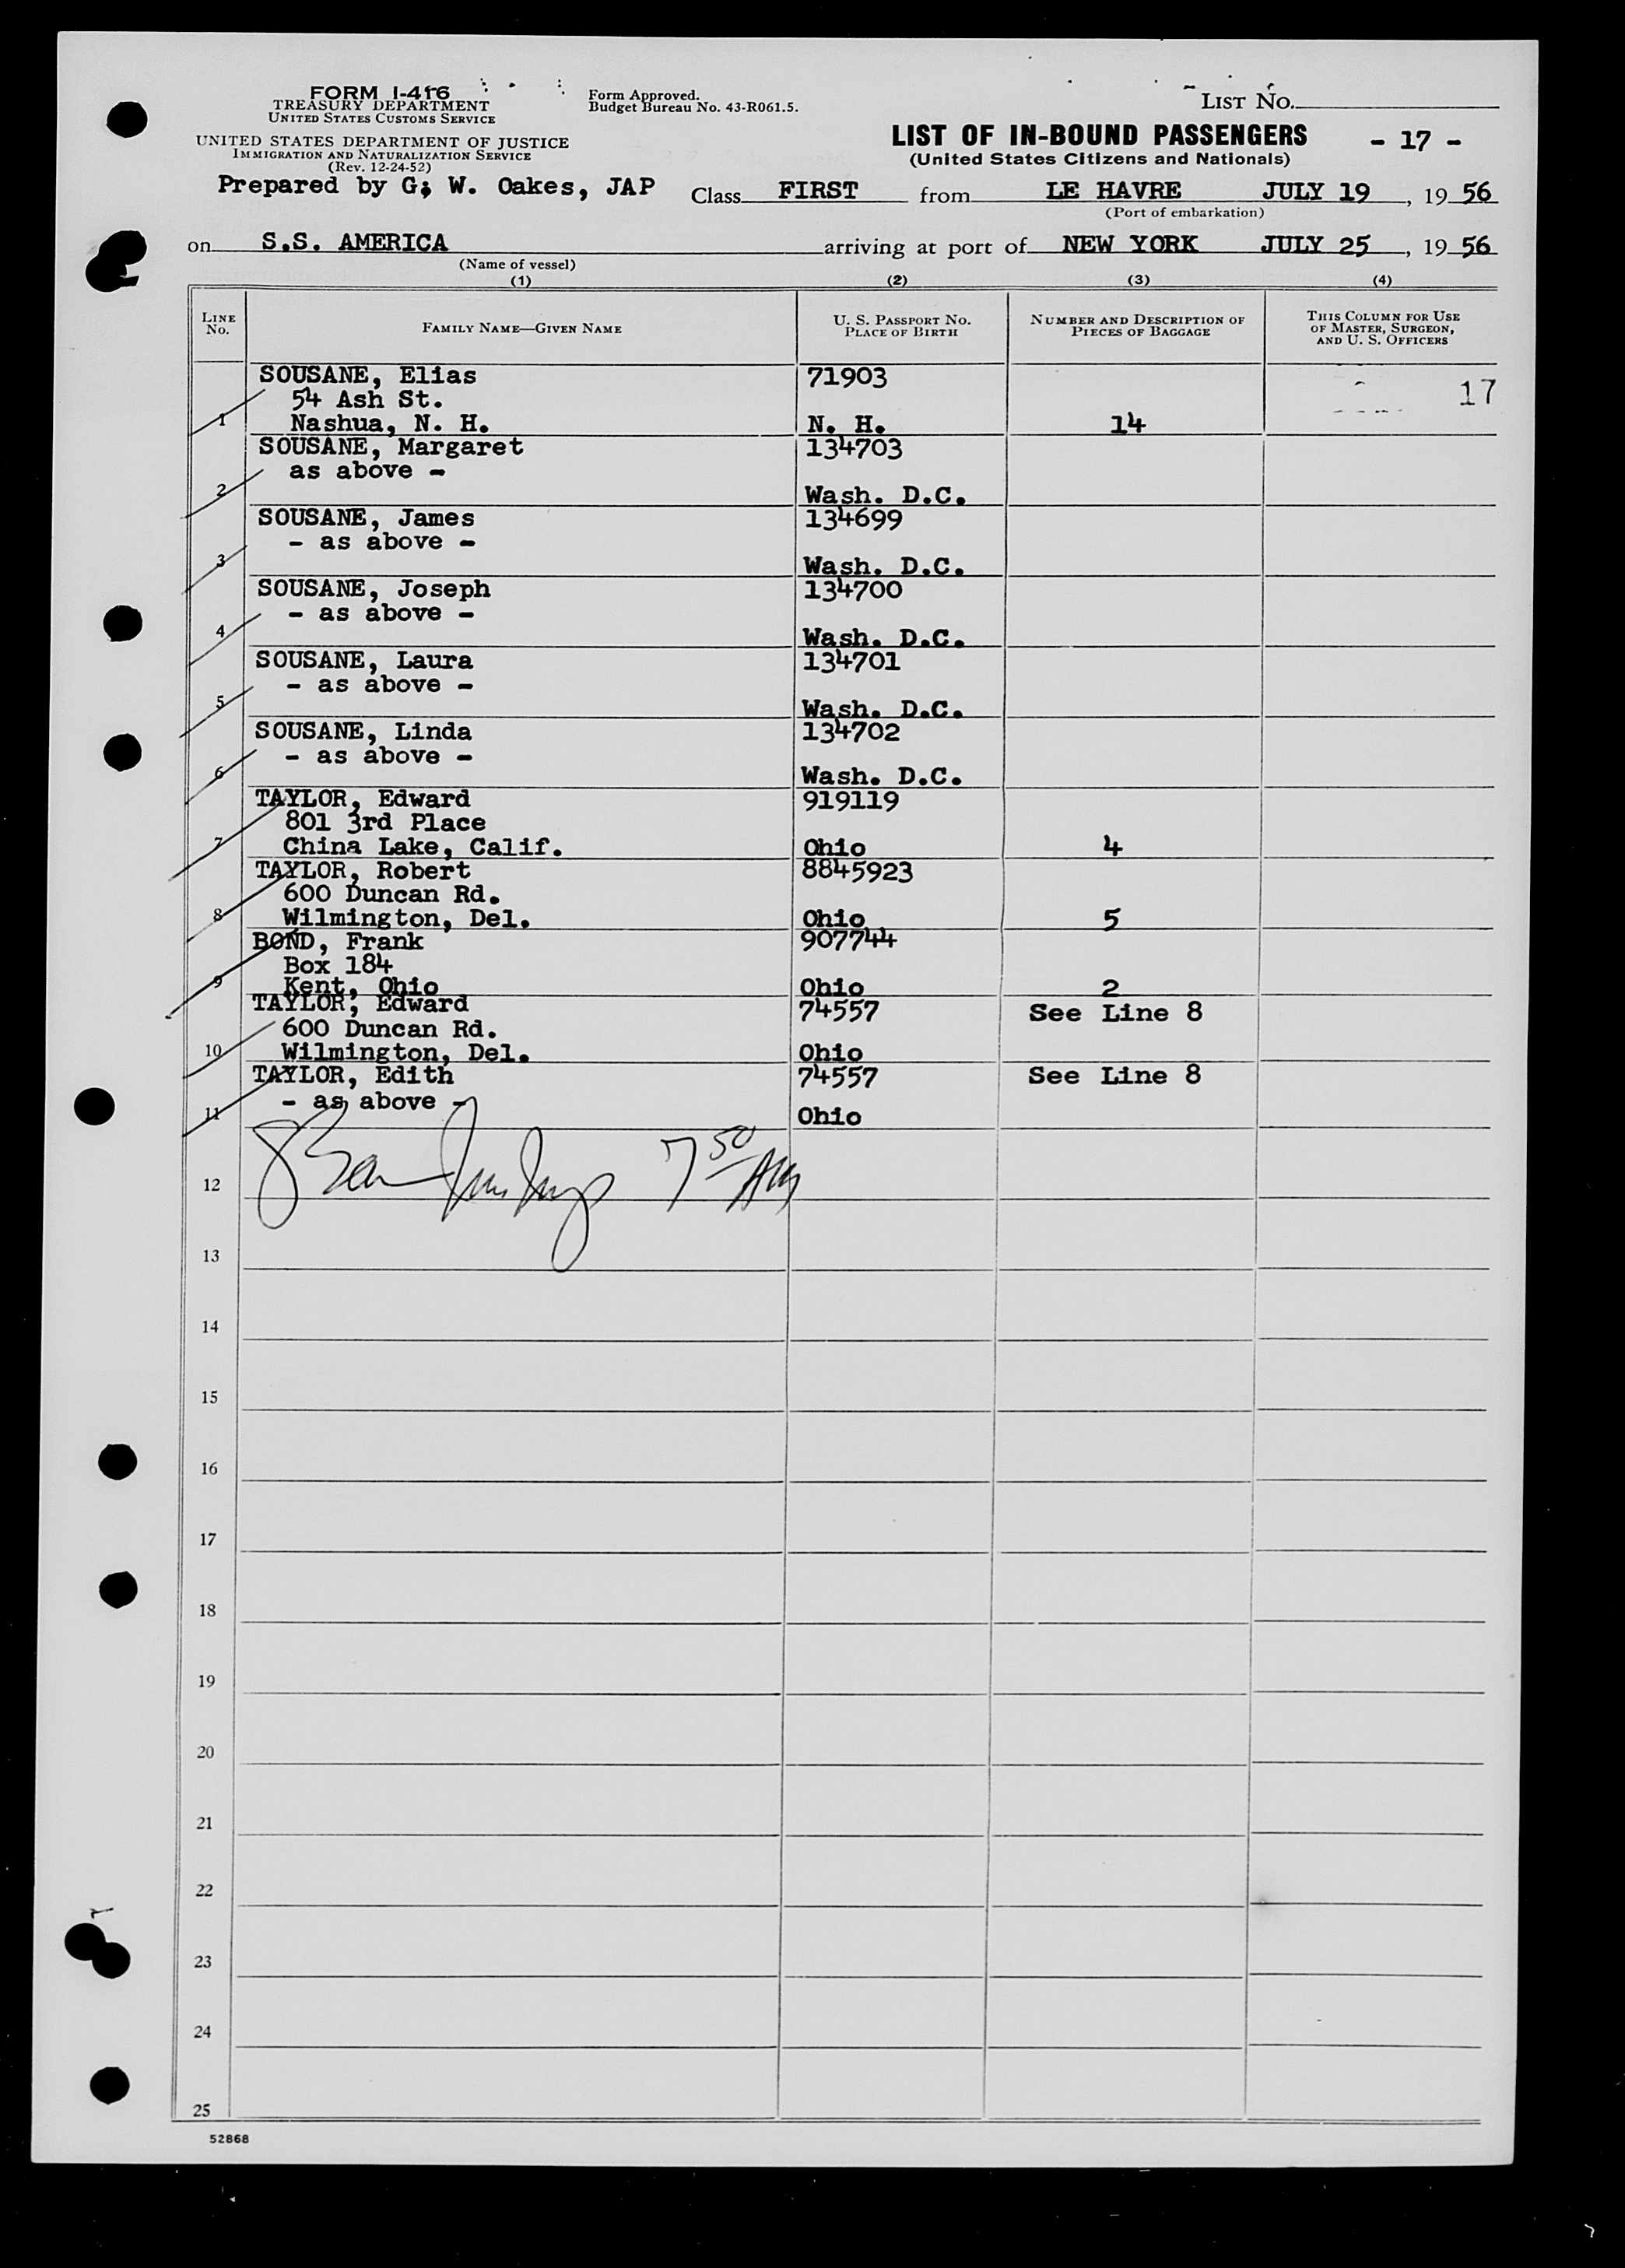 FORM I-416
TREASURY DEPARTMENT
UNITED STATES CUSTOMS SERVICE
UNITED STATES DEPARTMENT OF JUSTICE
IMMIGRATION AND NATURALIZATION SERVICE
(Rev. 12-24-52)
Form Approved.
Budget Bureau No. 43-R061.5.
LIST NO.
LIST OF IN-BOUND PASSENGERS - 17 -
(United States Citizens and Nationals)
Prepared by G; W. Oakes, JAP Class FIRST from LE HAVRE JULY 19, 1956
(Port of embarkation)
on S.S. AMERICA arriving at port of NEW YORK JULY 25, 1956
(Name of vessel)
(1) (2) (3) (4)
LINE NO. FAMILY NAME—GIVEN NAME U. S. PASSPORT NO. PLACE OF BIRTH NUMBER AND DESCRIPTION OF PIECES OF BAGGAGE THIS COLUMN FOR USE OF MASTER, SURGEON, AND U. S. OFFICERS
SOUSANE, Elias 71903 17
54 Ash St.
1 Nashua, N. H. N. H. 14
SOUSANE, Margaret 134703
as above -
2 Wash. D.C.
SOUSANE, James 134699
- as above -
3 Wash. D.C.
SOUSANE, Joseph 134700
- as above -
4 Wash. D.C.
SOUSANE, Laura 134701
- as above -
5 Wash. D.C.
SOUSANE, Linda 134702
- as above -
6 Wash. D.C.
TAYLOR, Edward 919119
801 3rd Place
7 China Lake, Calif. Ohio 4
TAYLOR, Robert 8845923
600 Duncan Rd.
8 Wilmington, Del. Ohio 5
BOND, Frank 907744
Box 184
9 Kent, Ohio Ohio 2
TAYLOR, Edward 74557 See Line 8
600 Duncan Rd.
10 Wilmington, Del. Ohio
TAYLOR, Edith 74557 See Line 8
- as above -
11 Ohio
7 50 AM
12
13
14
15
16
17
18
19
20
21
22
23
24
25
52868